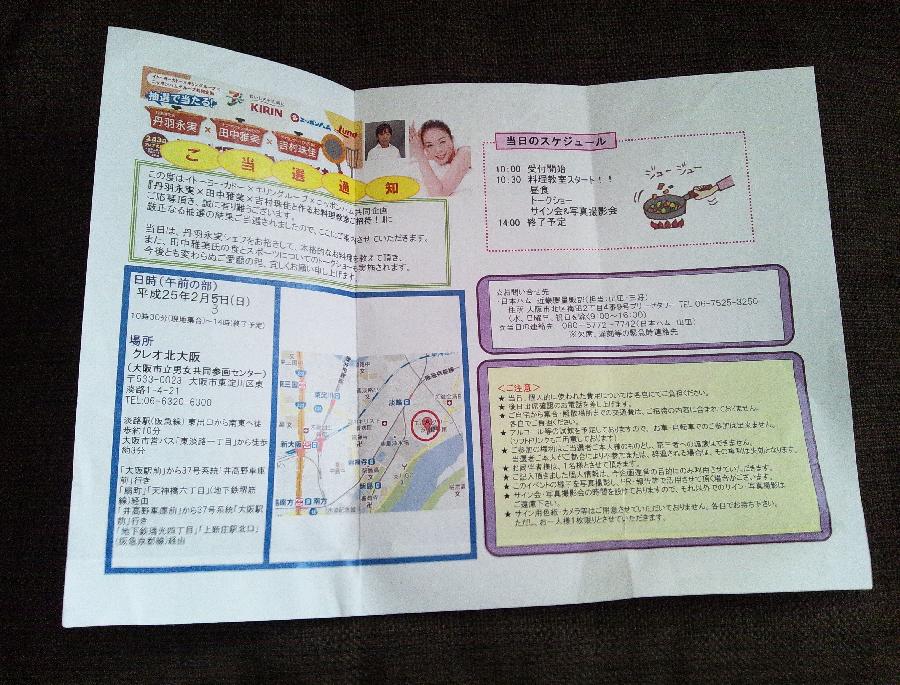 イトーヨーカドー×キリングループ×
ニッポンハムグループ共同企画
抽選で当たる!
KIRIN
ニッポンハム
丹羽永実
×
田中雅美
×
吉村珠佳
ご当選通知
この度はイトーヨーカドー×キリングループ×ニッポンハム共同企画
『丹羽永実×田中雅美×吉村珠佳と作るお料理教室ご招待!』に
ご応募頂き、誠に有り難うございます。
厳正なる抽選の結果ご当選されましたので、ここにご案内させていただきます。
当日は、丹羽永実シェフをお招きして、本格的なお料理を教えて頂き、
また、田中雅美氏の食とスポーツについてのトークショーも実施されます。
今後とも変わらぬご愛顧の程、宜しくお願い申し上げます。
日時(午前の部)
平成25年2月日(日)
3
10時30分(現地集合)~14時(終了予定)
場所
クレオ北大阪
(大阪市立男女共同参画センター)
〒533-0023 大阪市東淀川区東
淡路1-4-21
TEL:06-6320-6300
淡路駅(阪急線)東出口から南東へ徒
歩約10分
大阪市営バス「東淡路一丁目」から徒歩
約3分
「大阪駅前」から37号系統「井高野車庫
前」行き
「扇町」「天神橋六丁目」(地下鉄堺筋
線)経由
「井高野車庫前」から37号系統「大阪駅
前」行き
「地下鉄瑞光四丁目」「上新庄駅北口」
(阪急京都線)経由
当日のスケジュール
10:00 受付開始
10:30 料理教室スタート!!
昼食
トークショー
サイン会&写真撮影会
14:00 終了予定
ジュー ジュー
☆お問い合せ先
TEL 06-7525-3250
(水、日曜日、祝日を除く9:00~16:00)
☆当日の連絡先 080-5772-7742(日本ハム
※欠席、遅刻等の緊急時連絡先
<ご注意>
★ 当日、個人的に使われた費用については各自にてご負担ください。
★ 後日出席確認のお電話を差し上げます。
★ ご自宅から集合・解散場所までの交通費は、ご招待の内容に含まれておりません。
各自でご負担ください。
★ アルコール等の試飲を予定しておりますので、お車・自転車でのご参加は出来ません。
(ソフトドリンクもご用意しております)
★ ご参加の権利はご当選者ご本人様のものとし、第三者への譲渡はできません。
★ お同伴者様は、1名様とさせて頂きます。
★ ご記入頂きました個人情報は、本企画運営の目的にのみ利用させていただきます。
★ このイベントの様子を写真撮影し、PR・報告等で活用させて頂く場合がございます。
★ サイン会・写真撮影会の時間を設けておりますので、それ以外でのサイン・写真撮影は
ご遠慮下さい。
★ サイン用色紙・カメラ等はご用意させていただいておりません。各自でお持ち下さい。
ただし、お一人様1枚限りとさせていただきます。